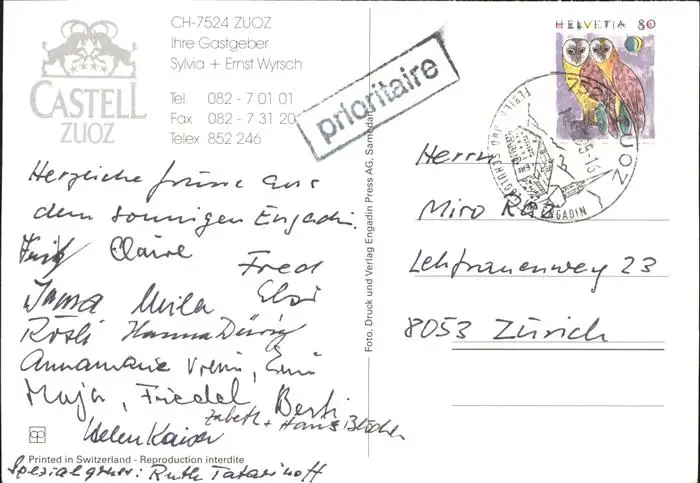 CASTELL
ZUOZ
CH-7524 ZUOZ
Ihre Gastgeber
Sylvia + Ernst Wyrsch
Tel. 082 - 7 01 01
Fax 082 - 7 31 20
Telex 852 246
prioritaire
HELVETIA 80
ZUOZ
ENGADIN
Herzliche Grüsse aus
dem sonnigen Engadin.
Fritz Claire
Fred
Elsi
Mila
Rösli Hanna Dürig
Annamarie Vreni,
Maja, Friedel Berti
Helen Kaiser
+ Hans
Spezialgruss: Ruth Tatarinoff
Foto, Druck und Verlag Engadin Press AG, Samedan
Printed in Switzerland - Reproduction interdite
Herrn
Miro
Lehfrauenweg 23
8053 Zürich